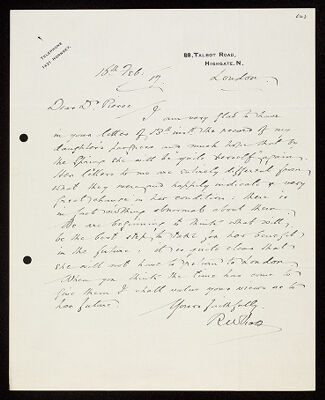 (2)
TELEPHONE
1431, HORNSEY.
89, TALBOT ROAD,
HIGHGATE, N.
London
15th Feb. 19
Dear Dr Pierce
I am very glad to have
in your letter of 13th inst the record of my
daughter's progress and much hope that by
the Spring she will be quite herself again.
Her letters to me are entirely different from
what they were and happily indicate a very
great change in her condition: there is
in fact nothing abnormal about them.
We are beginning to think what will
be the best step to take for her benefit
in the future. It is quite clear that
she will not have to return to London.
When you think the time has come to
give them I shall value your views as to
her future
Yours faithfully